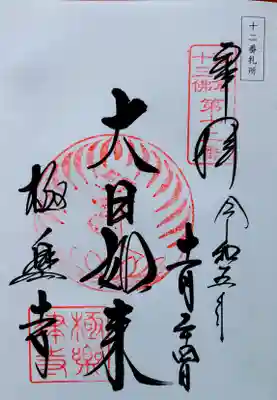 十二番札所
奉拝
令和五年
十一月二十四日
大日如来
極楽寺
十三佛
第十二番
極楽
律寺